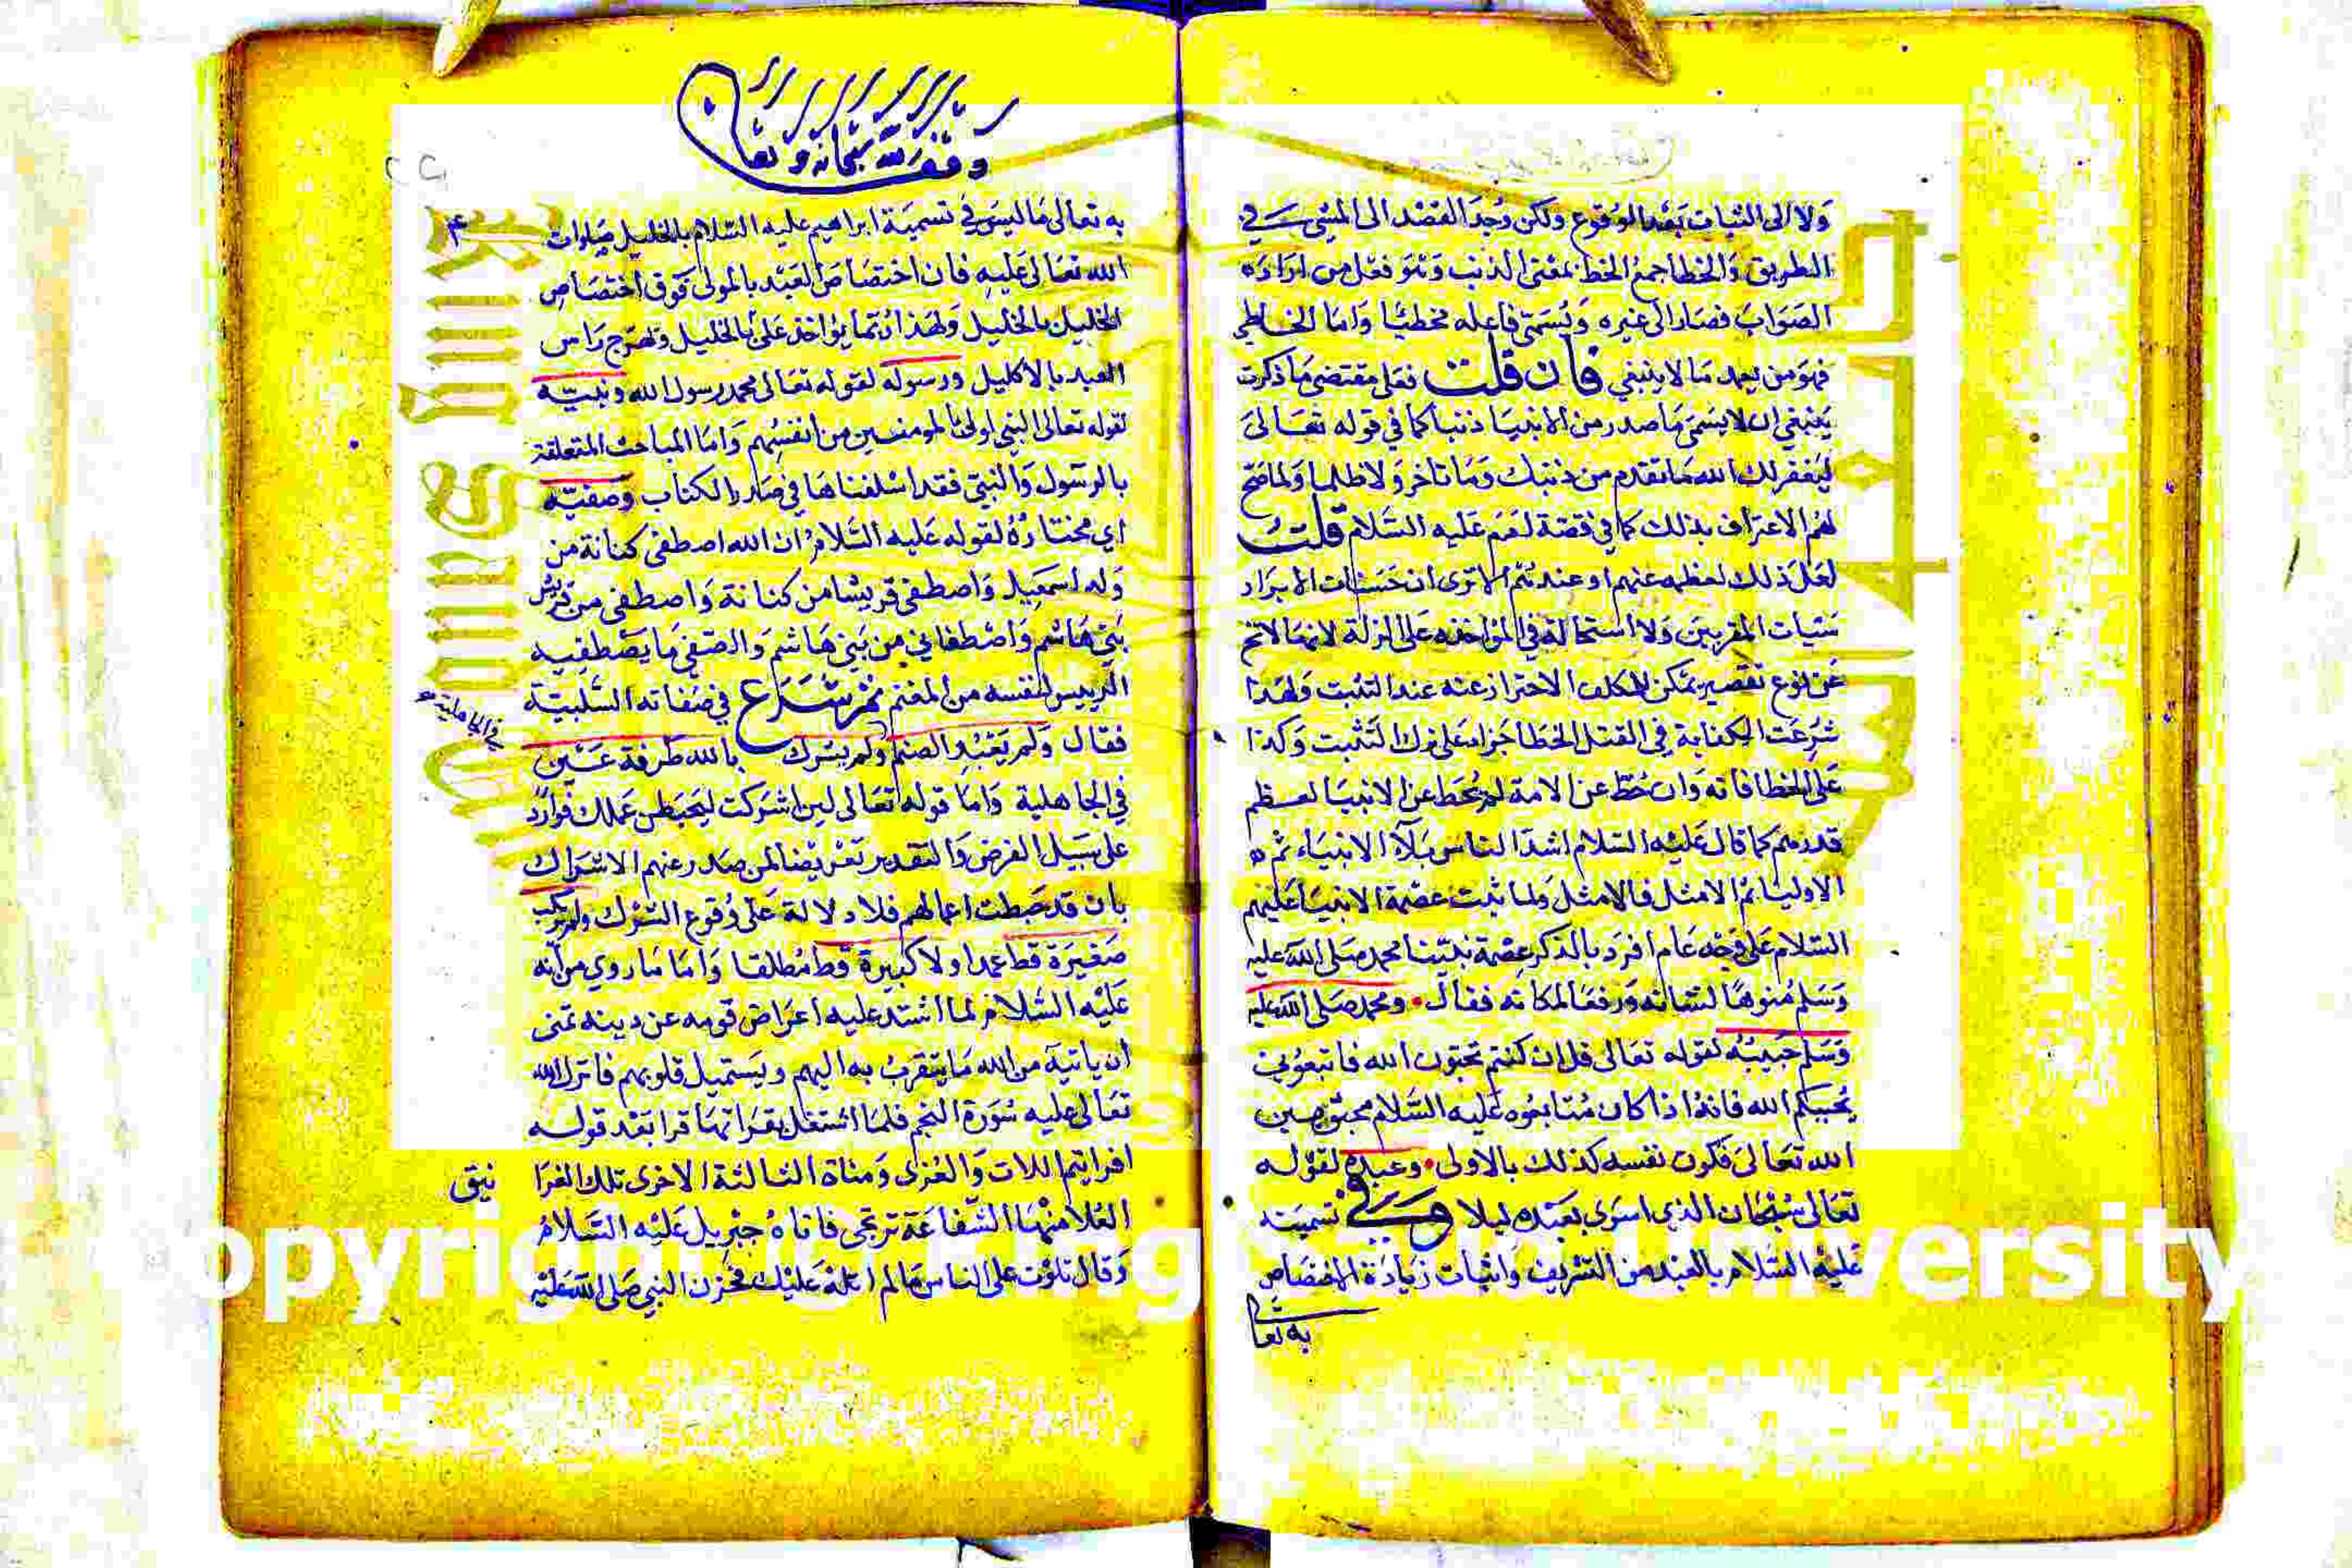 ولا الى الثبات بعد الوقوع ولكن وجد القصد الى المشي في
الطريق والخطا جمع الخطا بمعنى الذنب وهو فعل من اراد
الصواب فصار الى غيره ويسمى فاعله مخطئا واما الخاطي
فهو من يعمد ما لا ينبغي فان قلت فعلى مقتضى ما ذكرت
ينبغي ان لا يسمى ما صدر من الانبيا ذنبا كما في قوله تعالى
ليغفر لك الله ما تقدم من ذنبك وما تاخر ولا ظلما ولما صح
لهم الاعتراف بذلك كما في قصة ادم عليه السلام قلت
لعل ذلك لعظمه عنهم او عندهم الا ترى ان حسنات الابرار
سيات المقربين ولا استحالة في المواخذه على الزلة لانها لا تخ
عن نوع تقصير يمكن للمكلف الاحتراز عنه عند التثبت ولهذا
شرعت الكفارة في القتل الخطا جزاء على ترك التثبت وكذا
على الخطا فانه وان حط عن الامة لم يحط عن الانبيا لعظم
قدرهم كما قال عليه السلام اشد الناس بلاء الانبياء ثم
الاوليا ثم الامثل فالامثل ولما ثبت عصمة الانبيا عليهم
السلام على وجه عام افرد بالذكر عصمة نبينا محمد صلى الله عليه
وسلم منوها لشانه ورفعا لمكانه فقال ومحمد صلى الله عليه
وسلم حبيبه لقوله تعالى قل ان كنتم تحبون الله فاتبعوني
يحببكم الله فانه اذا كان متابعوه عليه السلام محبوبين
الله تعالى فكون نفسه كذلك بالاولى وعبده لقوله
تعالى سبحان الذي اسرى بعبده ليلا وفي تسميته
عليه السلام بالعبد من التشريف واثبات زيادة الاختصاص
به تعالى
وقف لله سبحانه وتعالى
به تعالى ما ليس في تسمية ابراهيم عليه السلام بالخليل صلوات
الله تعالى عليه فان اختصاص العبد بالمولى فوق اختصاص
الخليل بالخليل ولهذا
العبد بالاكليل ورسوله لقوله تعالى محمد رسول الله ونبيه
لقوله تعالى النبي اولى بالمومنين من انفسهم واما المباحث المتعلقة
بالرسول والنبي فقد اسلفناها في صدر الكتاب وصفيه
اي مختاره لقوله عليه السلام ان الله اصطفى كنانة من
ولد اسمعيل واصطفى قريشا من كنانة واصطفى من قريش
بني هاشم واصطفاني من بني هاشم والصفي ما يصطفيه
الرييس لنفسه من المغنم ثم شرع في صفاته السلبية
فقال ولم يعبد الصنم ولم يشرك بالله طرفة عين
في الجاهلية
في الجاهلية واما قوله تعالى لين اشركت ليحبطن عملك فوارد
على سبيل الفرض والتقدير تعريضا لمن صدر عنهم الاشراك
بان قد حبطت اعمالهم فلا دلالة على وقوع الشرك ولم يرتكب
صغيرة قط عمدا ولا كبيرة قط مطلقا واما ما روي من انه
عليه السلام لما اشتد عليه اعراض قومه عن دينه تمنى
ان ياتيه من الله ما يتقرب به اليهم ويستميل قلوبهم فانزل الله
تعالى عليه سورة النجم فلما اشتغل بقراتها قرا بعد قوله
افرايتم اللات والعزى ومناة الثالثة الاخرى تلك الغرا
نيق
العلا منها الشفاعة ترتجى فاتاه جبريل عليه السلام
وقال تلوت على الناس ما لم اتله عليك فحزن النبي صلى الله عليه
Copyright © King Saud University